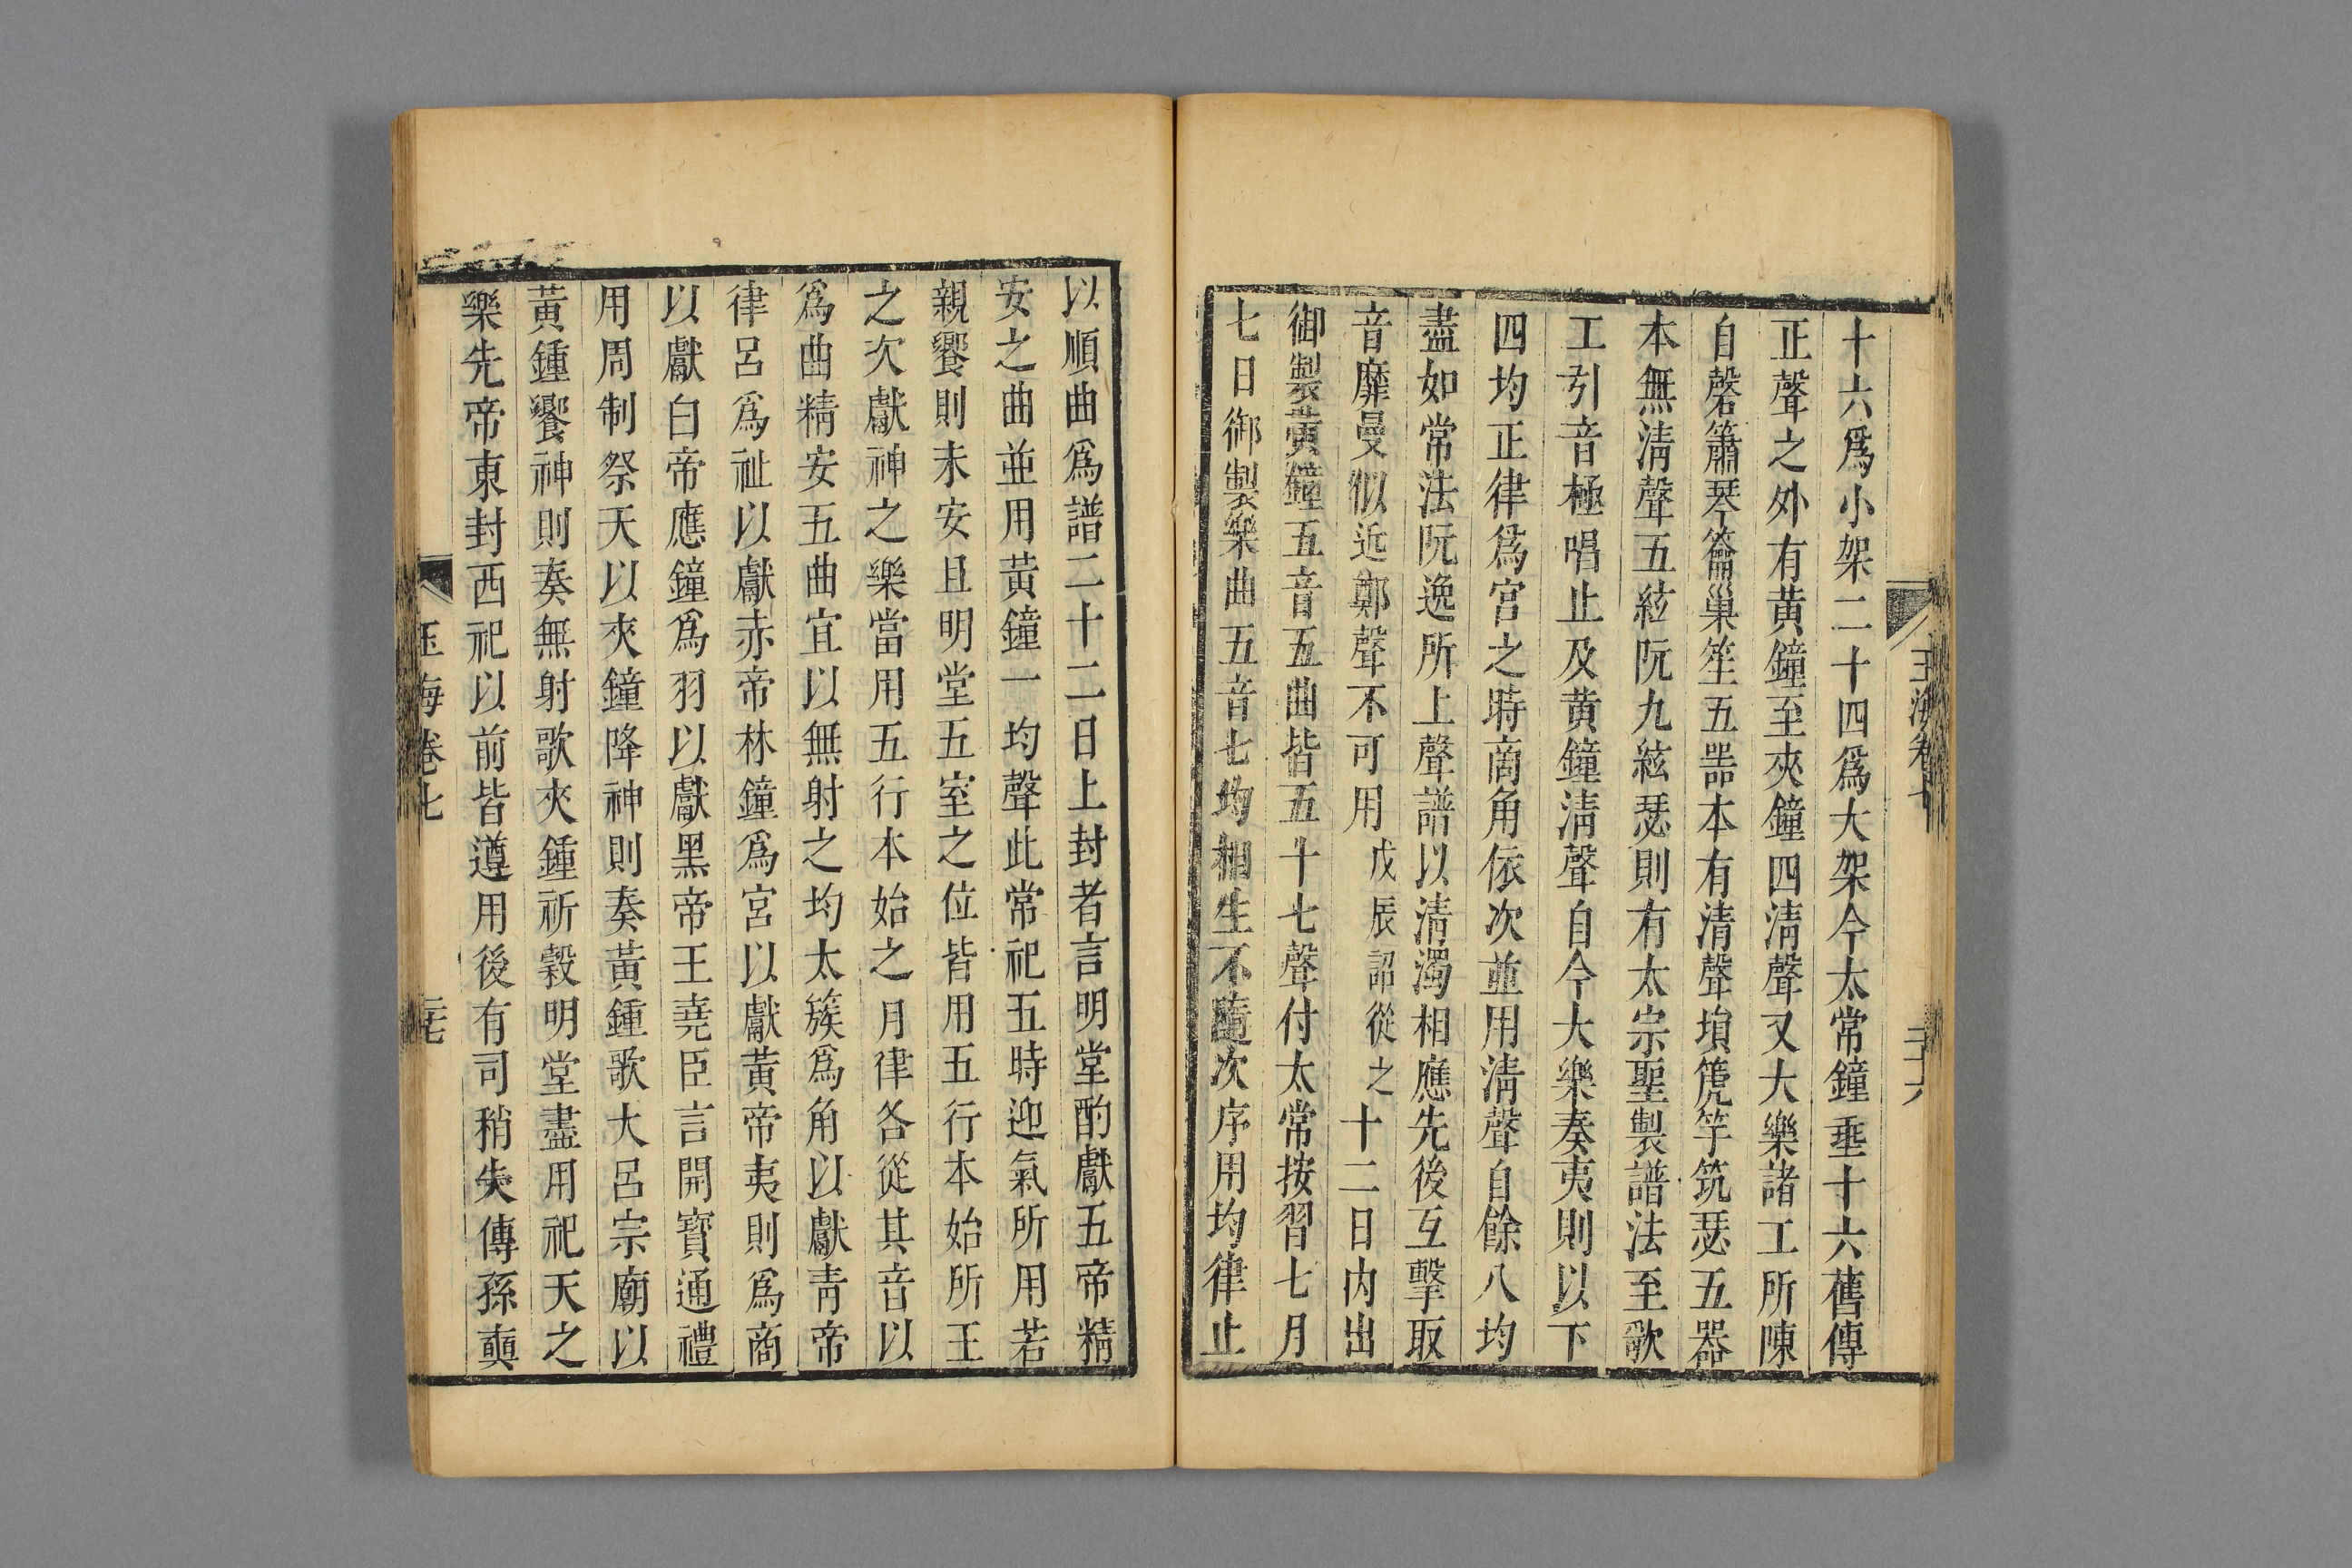 十六爲小架二十四爲大架今太常鐘垂十六舊傳
正聲之外有黄鐘至夾鐘四淸聲又大樂諸工所陳
自磬簫琴籥巢笙五噐本有清聲塤箎竽筑瑟五器
本無淸聲五絃阮九絃瑟則有太宗聖製譜法至歌
工引音極唱止及黄鐘淸聲自今大樂奏夷則以下
四均正律爲宮之時商角依次並用淸聲自餘八均
盡如常法阮逸所上聲譜以淸濁相應先後互擊取
音靡曼似近鄭聲不可用戊辰詔從之十二日内出
御製黄鐘五音五曲皆五十七聲付太常按習七月
七日御製樂曲五音七均相生不隨次序用均律止
玉海卷七
二十六
以順曲爲譜二十二日上封者言明堂酌獻五帝精
安之曲並用黃鐘一均聲此常祀五時迎氣所用若
親饗則未安且明堂五室之位皆用五行本始所王
之次獻神之樂當用五行本始之月律各從其音以
爲曲精安五曲宜以無射之均太簇爲角以獻靑帝
律呂爲祉以獻赤帝林鐘爲宮以獻黃帝夷則爲商
以獻白帝應鐘爲羽以獻黑帝王堯臣言開寶通禮
用周制祭天以夾鐘降神則奏黃鍾歌大呂宗廟以
黃鍾饗神則奏無射歌夾鍾祈穀明堂盡用祀天之
樂先帝東封西祀以前皆遵用後有司稍失傳孫奭
玉海卷七
二十七